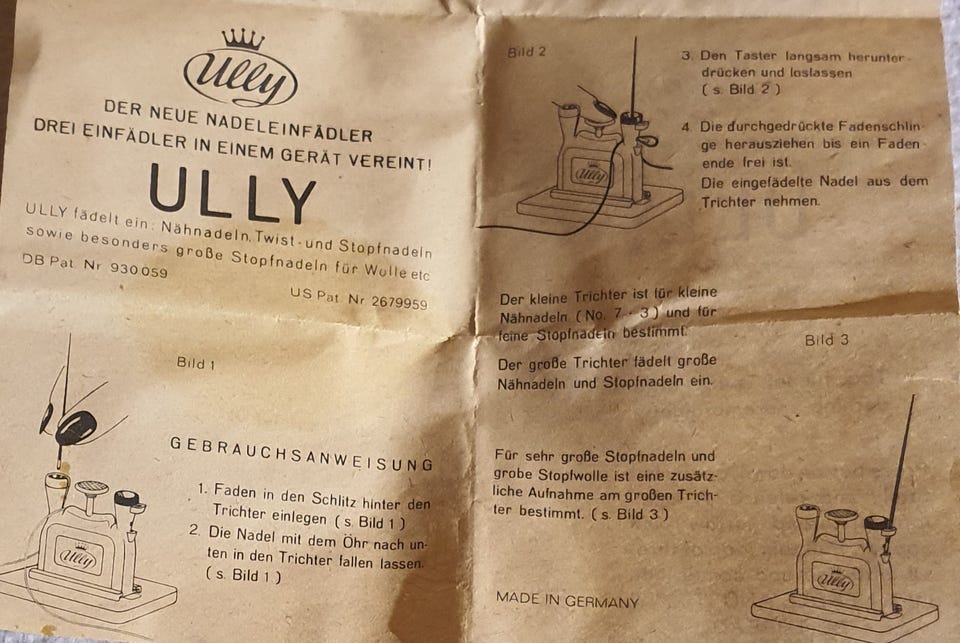 Ully
DER NEUE NADELEINFÄDLER
DREI EINFÄDLER IN EINEM GERÄT VEREINT!
ULLY
ULLY fädelt ein: Nähnadeln, Twist- und Stopfnadeln
sowie besonders große Stopfnadeln für Wolle etc
DB Pat. Nr 930059
US Pat. Nr 2679959
Bild 1
GEBRAUCHSANWEISUNG
1. Faden in den Schlitz hinter den
Trichter einlegen ( s. Bild 1 )
2. Die Nadel mit dem Öhr nach un-
ten in den Trichter fallen lassen.
( s. Bild 1 )
Ully
Bild 2
Ully
3. Den Taster langsam herunter-
drücken und loslassen
( s. Bild 2 )
4. Die durchgedrückte Fadenschlin-
ge herausziehen bis ein Faden-
ende frei ist.
Die eingefädelte Nadel aus dem
Trichter nehmen.
Der kleine Trichter ist für kleine
Nähnadeln ( No. 7 - 3 ) und für
feine Stopfnadeln bestimmt.
Der große Trichter fädelt große
Nähnadeln und Stopfnadeln ein.
Für sehr große Stopfnadeln und
grobe Stopfwolle ist eine zusätz-
liche Aufnahme am großen Trich-
ter bestimmt. ( s. Bild 3 )
MADE IN GERMANY
Bild 3
Ully